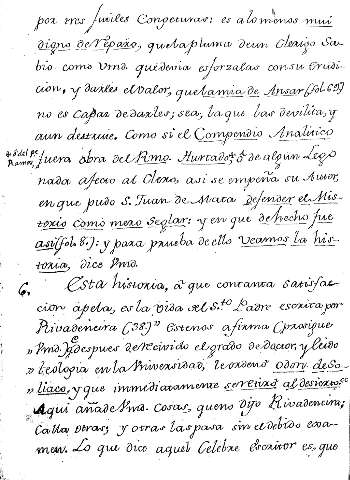 por tres futiles Congeturas: es alomenos mui
digno de reparo, que la pluma de un Clerigo Sa-
bio como Vmd. quisiera esforzalas con su Erudi-
cion, y darles el valor, que la mia de Ansar (fol. 69)
no es Capaz de darles; sea, la que las devilita, y
aun destruie. Como si el Compendio Analitico
fuera obra del Rmo. Hurtado, ó de algun Lego
ó del Pe.
Ramon,
nada afecto al Clero, asi se empeña su Autor,
en que pudo S. Juan de Mata defender el Mis-
terio como mero Seglar: y en que de hecho fue
asi (fol. 8.): y para prueba de ello Veamos la his-
toria, dice Vmd.
6. Esta historia, á que con tanta satisfac-
cion apela, es la vida del Sto. Padre escrita por
Rivadeneira (38) " Este nos afirma (prosigue
" Vmd.) que despues de recivido el grado de doctor, y leido
" teologia en la Universidad, le ordenó Odon de So-
" liaco, y que immediatamente se retiró al desierto.
Aqui añade Vmd. cosas, que no dijo Rivadeneira;
Calla otras; y otras las pasa sin el debido exa-
men. Lo que dice aquel Celebre Escritor es, que